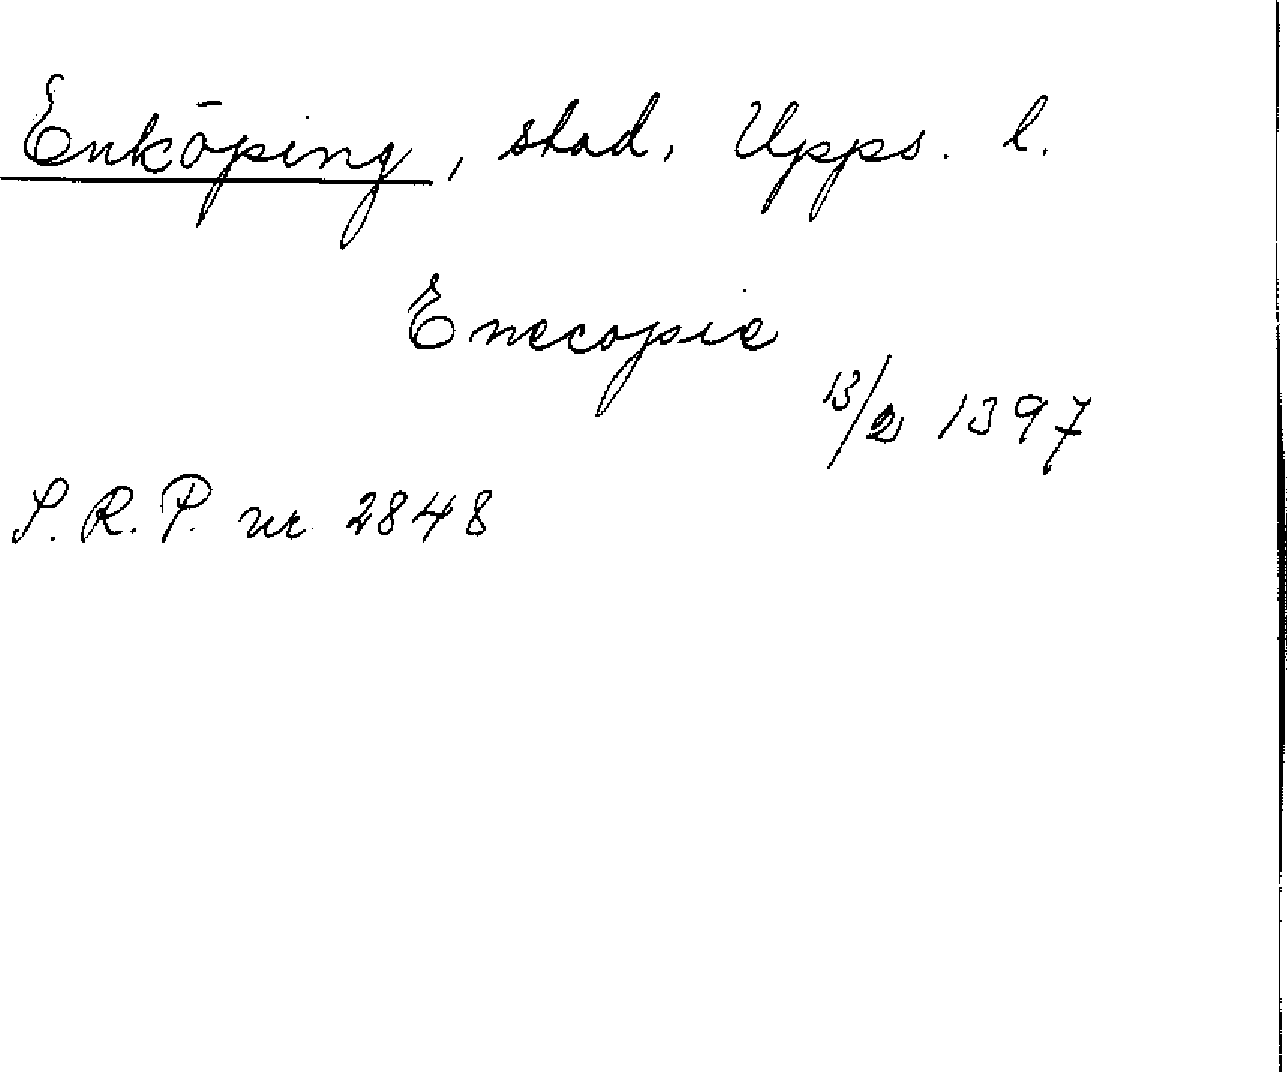 Enköping, stad, Upps. l.
Enecopie
13/2 1397
S.R.P. nr 2848